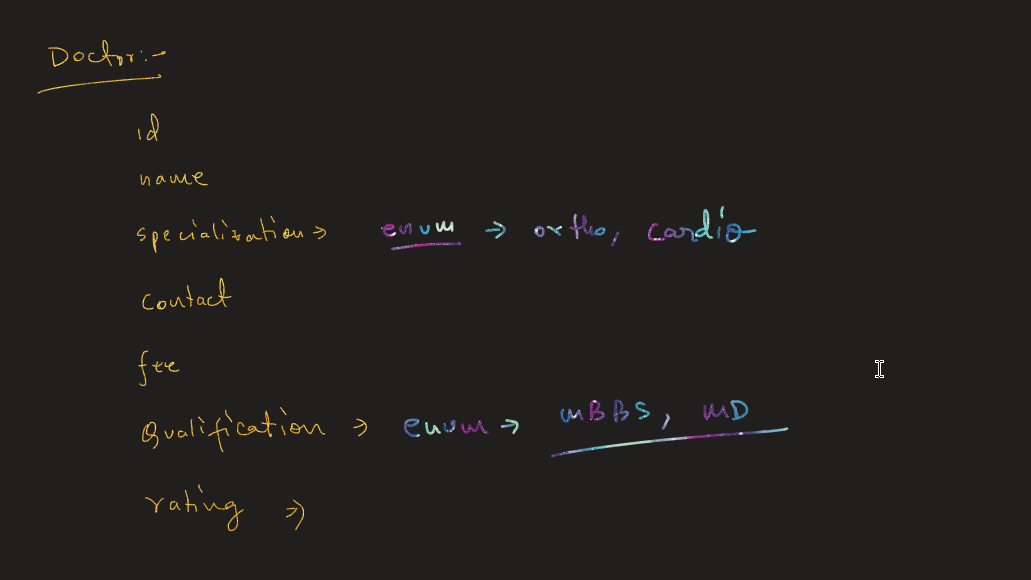 Doctor:-
id
name
specialization → enum → ortho, cardio
contact
fee
Qualification → enum → MBBS, MD
rating →